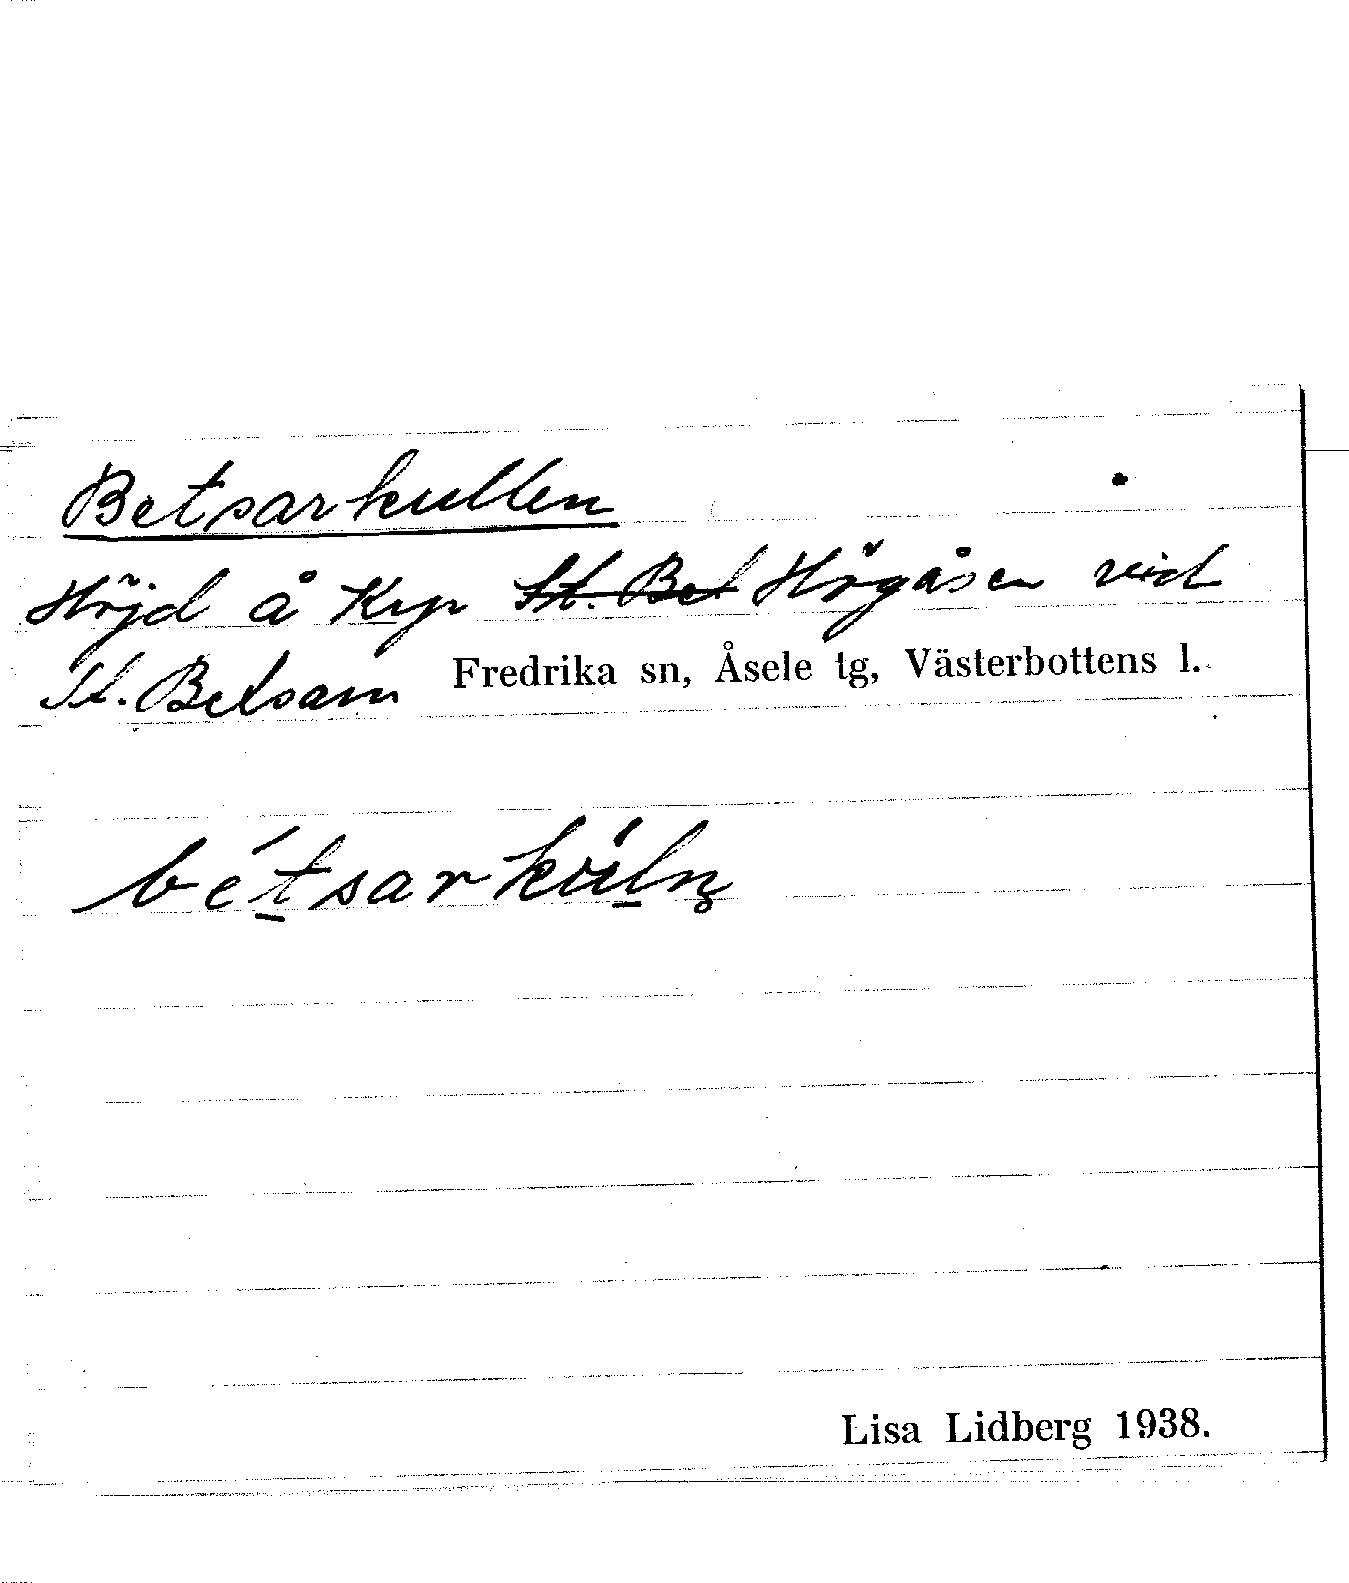 Betsarkullen
Höjd å Krp ~~St. Bet~~ Högåsen vid
St. Betsam Fredrika sn, Åsele tg, Västerbottens l.
bét̠sarkúl̠n̥
Lisa Lidberg 1938.